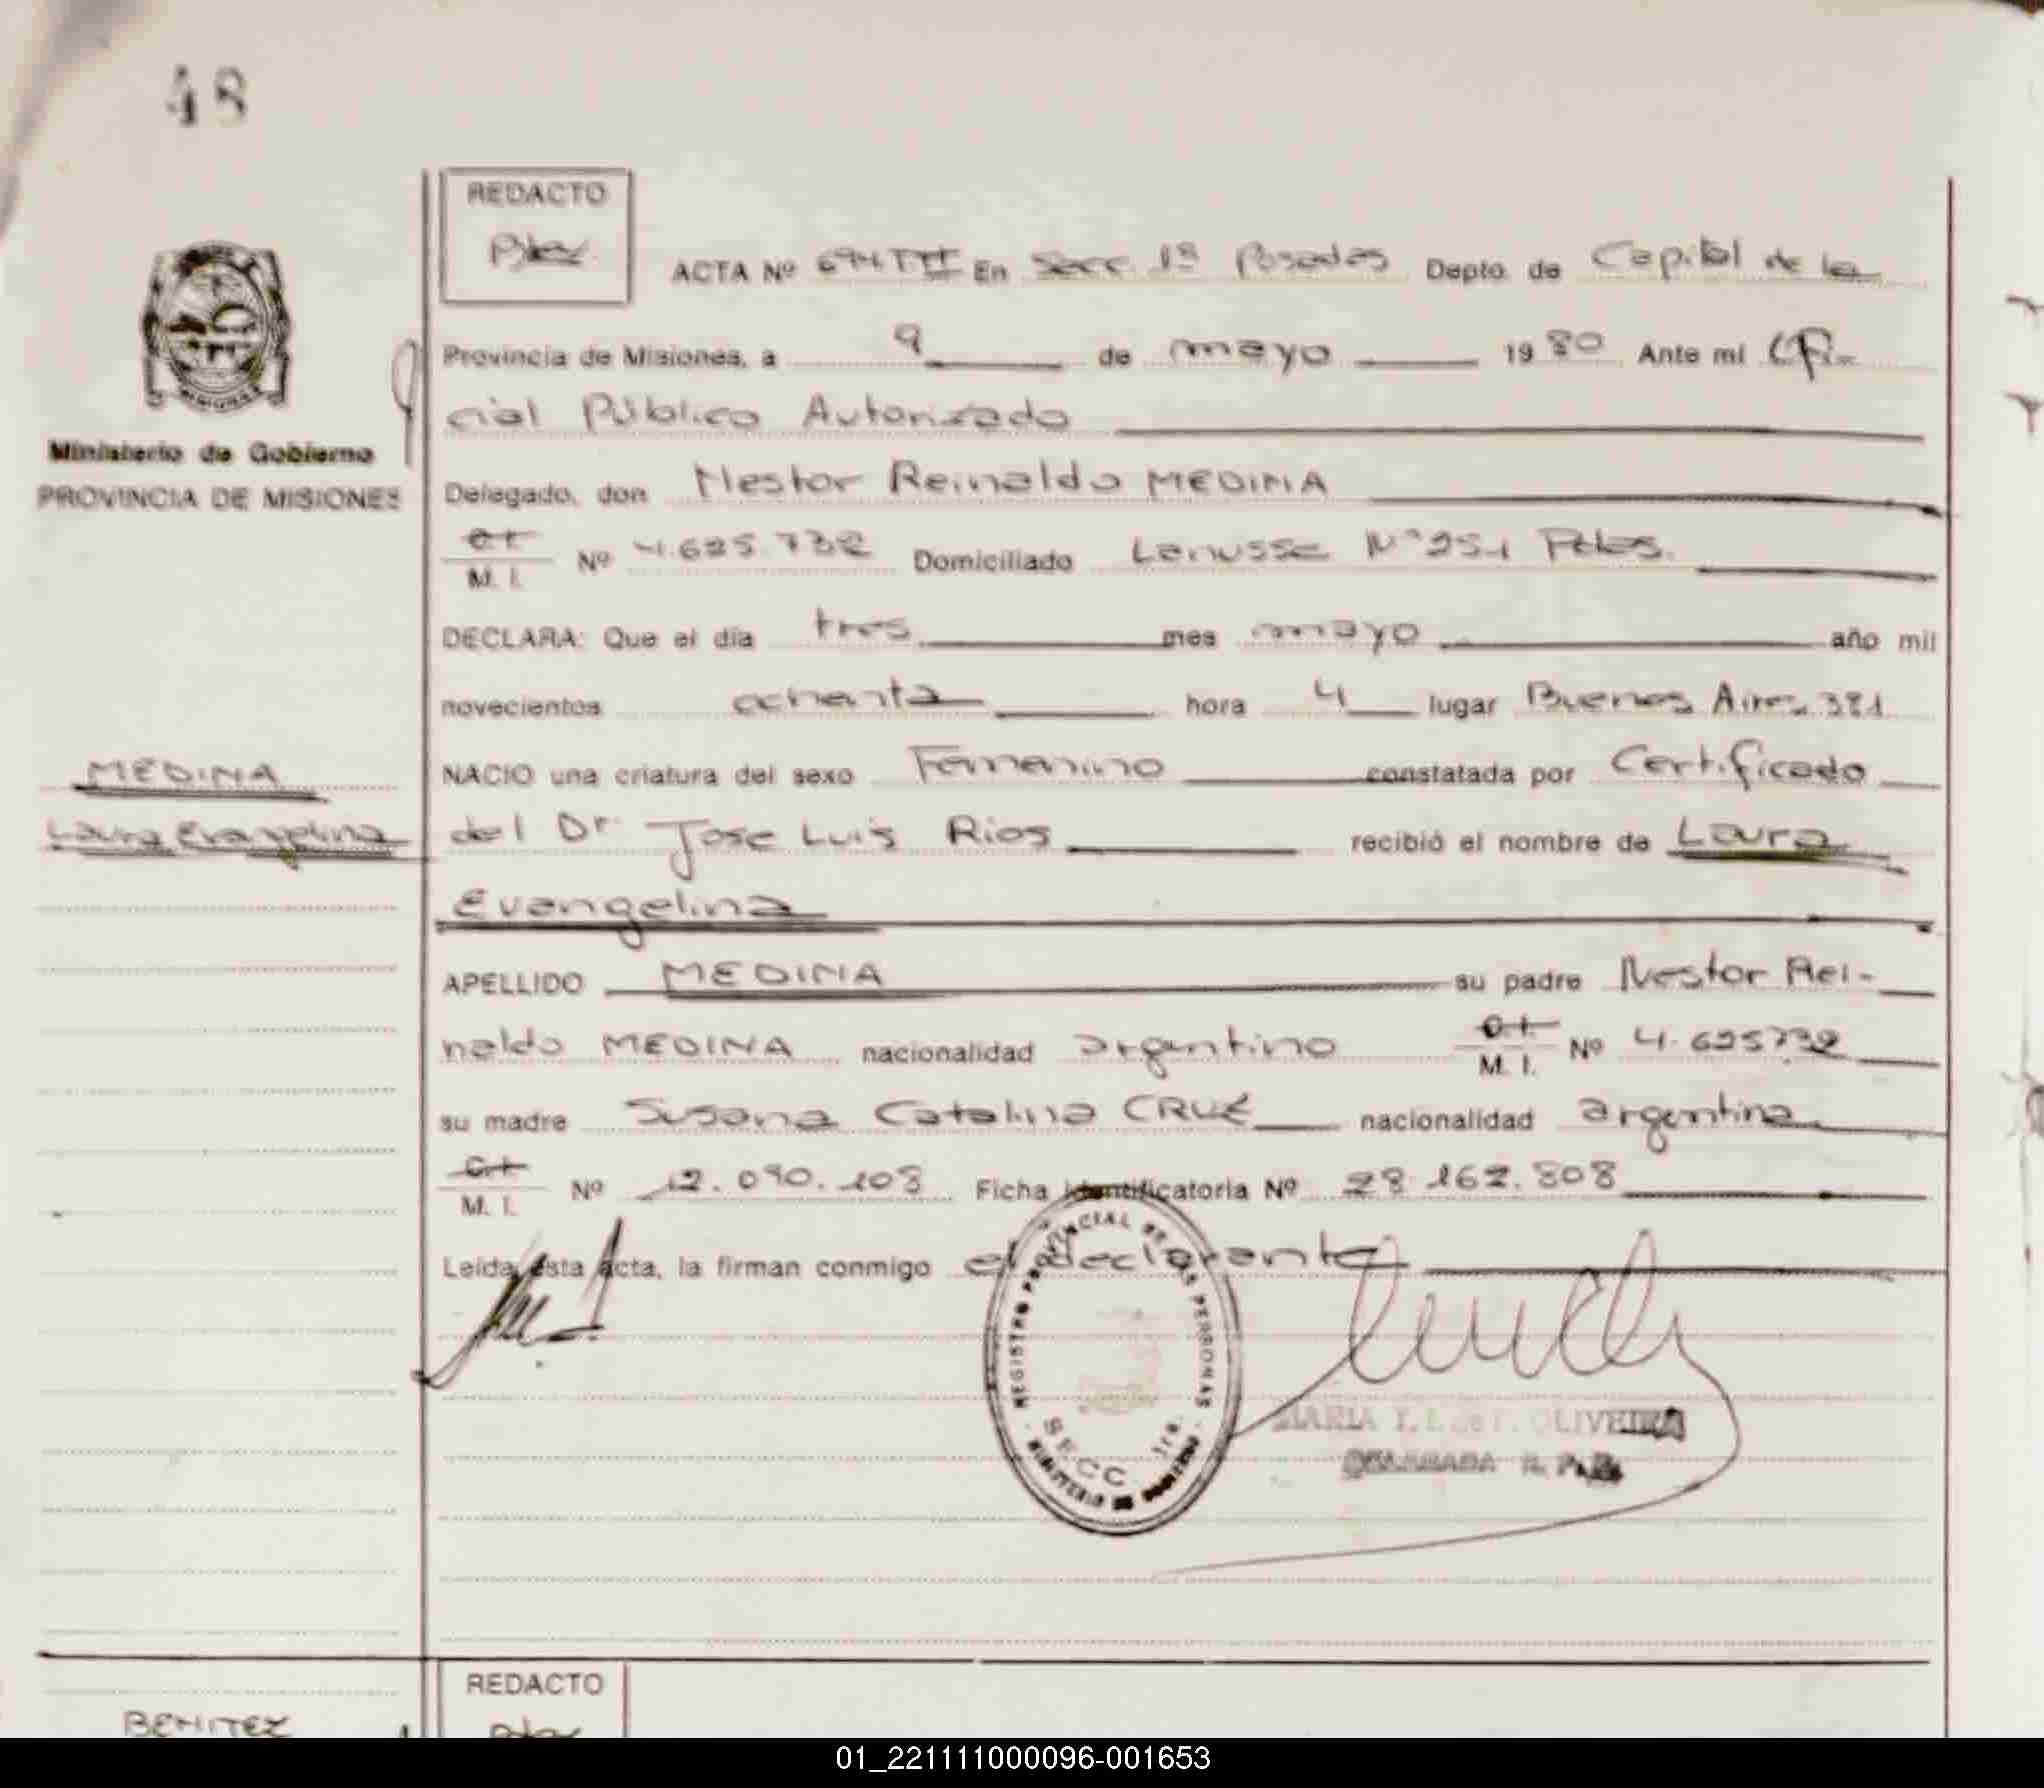 48
REDACTO
ACTA Nº 694 III En Secc. 1ª Posadas Depto. de Capital de la
Provincia de Misiones, a 9 de mayo 1980 Ante mi Ofi-
cial Público Autorizado
Ministerio de Gobierno
PROVINCIA DE MISIONES
Delegado, don Nestor Reinaldo MEDINA
C.I.
M. I. Nº 4.625.732 Domiciliado Lanusse Nº 251 Pdas.
DECLARA: Que el día tres mes mayo año mil
novecientos ochenta hora 4 lugar Buenos Aires 381
MEDINA
NACIO una criatura del sexo Femenino constatada por Certificado
Laura Evangelina
del Dr. Jose Luis Rios recibió el nombre de Laura
Evangelina
APELLIDO MEDINA su padre Nestor Rei-
naldo MEDINA nacionalidad argentino C.I. M. I. Nº 4.625732
su madre Susana Catalina CRUZ nacionalidad argentina
C.I.
M. I. Nº 12.090.103 Ficha Identificatoria Nº 28.162.808
Leída esta acta, la firman conmigo el declarante
REGISTRO PROVINCIAL DE LAS PERSONAS
SECC. 1ra.
MINISTERIO DE GOBIERNO
MARIA OLIVEIRA
DELEGADA R. P. P.
REDACTO
BENITEZ
01_221111000096-001653